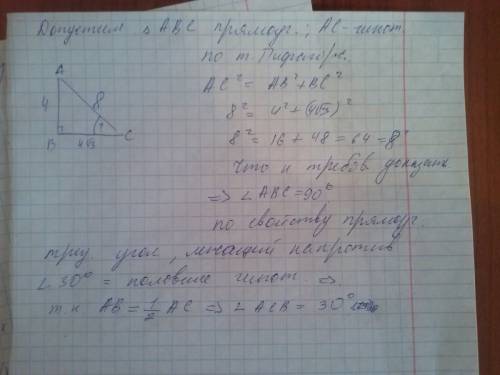 Допустим △ ABC прямоуг.; AC - гипот.
по т. Пифагора.
A
AC² = AB² + BC²
4
8
8² = 4² + (4√3)²
B
4√3
?
C
8² = 16 + 48 = 64 = 8²
Что и требов. доказать
=> ∠ ABC = 90°
по свойству прямоуг.
треу. угол, лежащий напротив
∠ 30° = половине гипот. =>
т.к AB = 1/2 AC => ∠ ACB = 30°